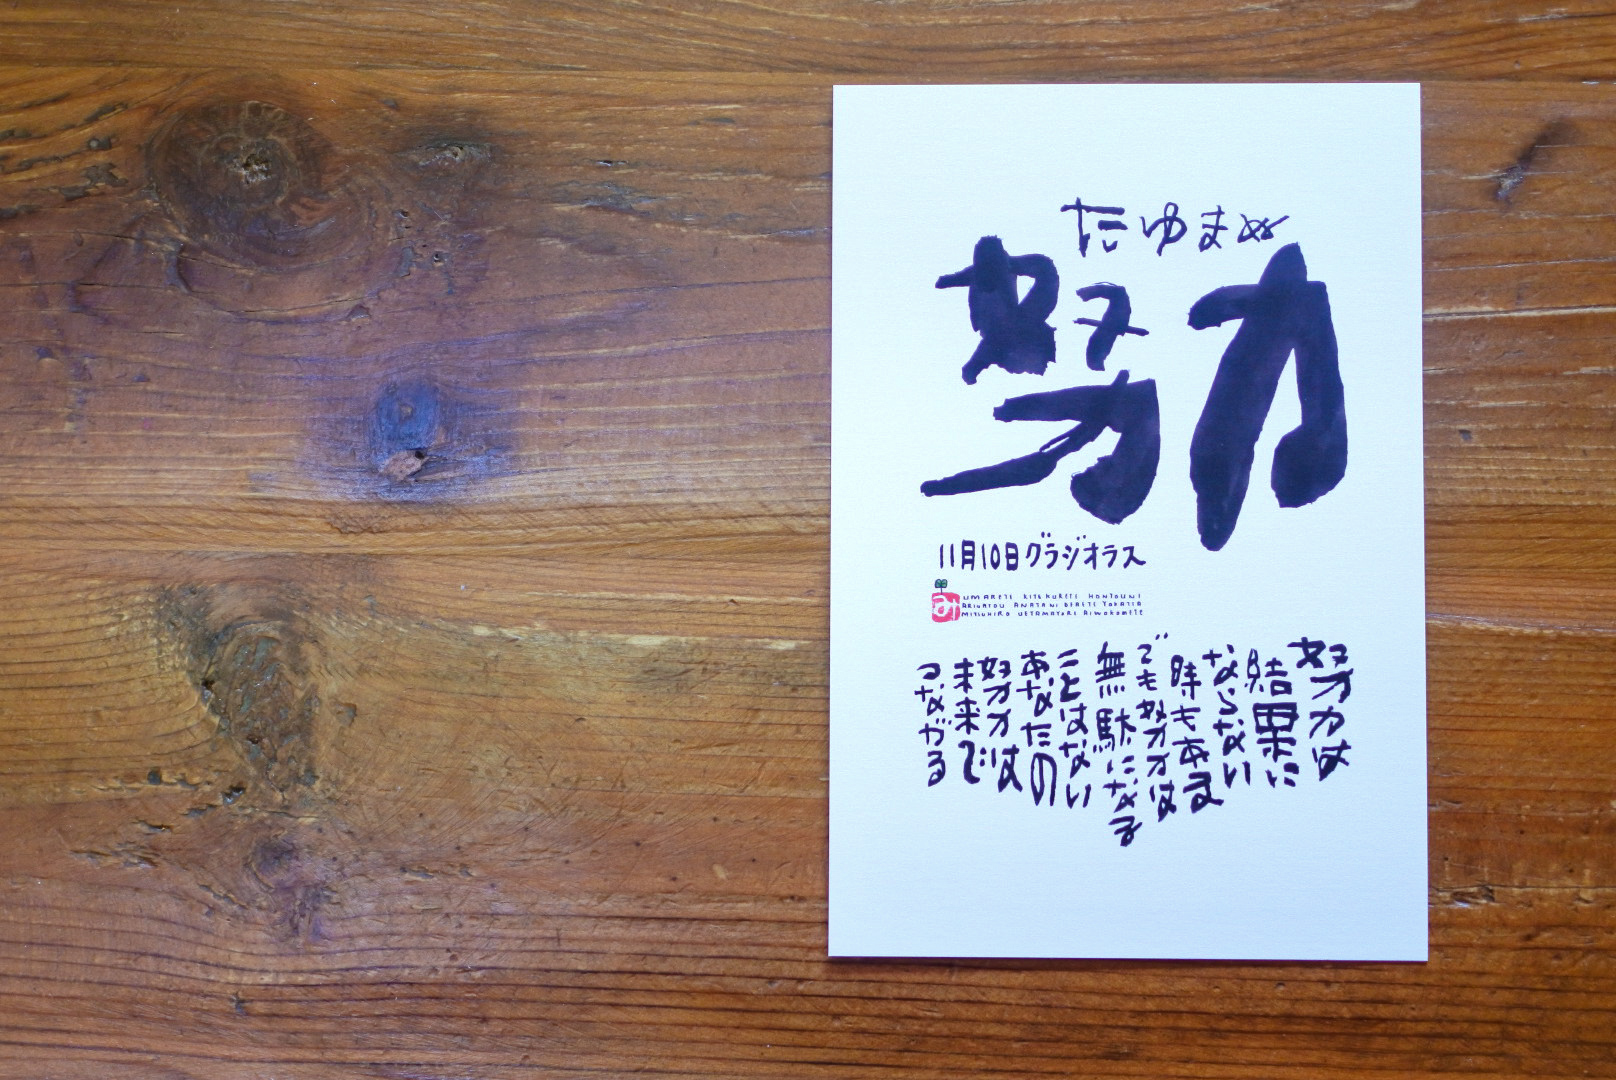 たゆまぬ
努力
11月10日グラジオラス
み
UMARETE KITEKURETE HONTOUNI
ARIGATOU ANATANI DEAETE YOKATTA
MITSUHIRO UETAMAYORI AIWOKOMETE
努力は
結果に
ならない
時もある
でも努力は
無駄になる
ことはない
あなたの
努力は
未来で
つながる